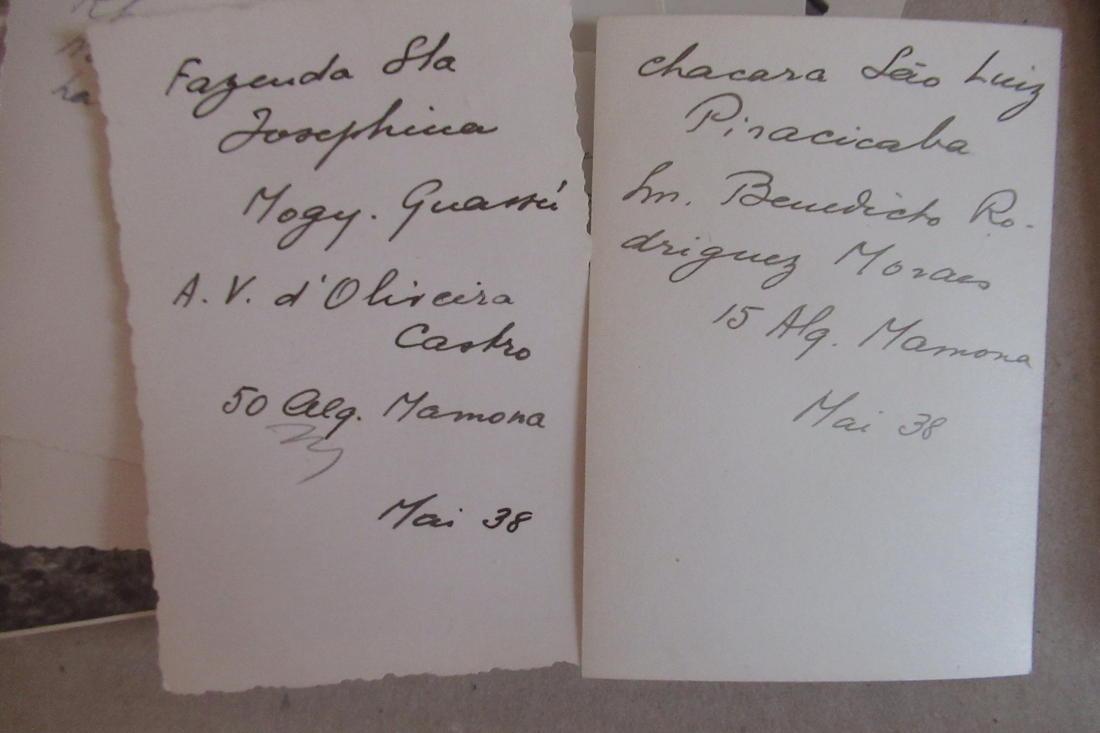 Fazenda Sta
Josephina
Mogy. Guassú
A. V. d'Oliveira
Castro
50 Alq. Mamona
Mai 38
chacara São Luiz
Piracicaba
Sn. Benedicto Ro-
driguez Moraes
15 Alq. Mamona
Mai 38